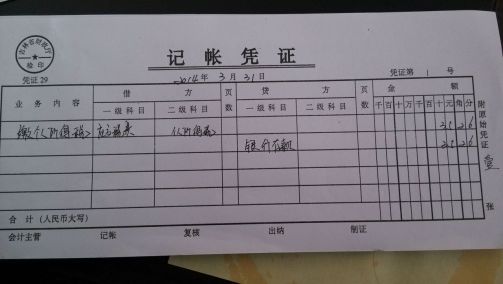 吉林省财政厅
监印
凭证29
记帐凭证
2014年 3月 31日
凭证第 1 号
业务内容 借方 页数 贷方 页数 金额
一级科目 二级科目 一级科目 二级科目 千百十万千百十元角分
缴个人所得税 个人所得税 35 26
银行存款 35 26
附原始凭证 壹 张
合计(人民币大写)
会计主管 记帐 复核 出纳 制证